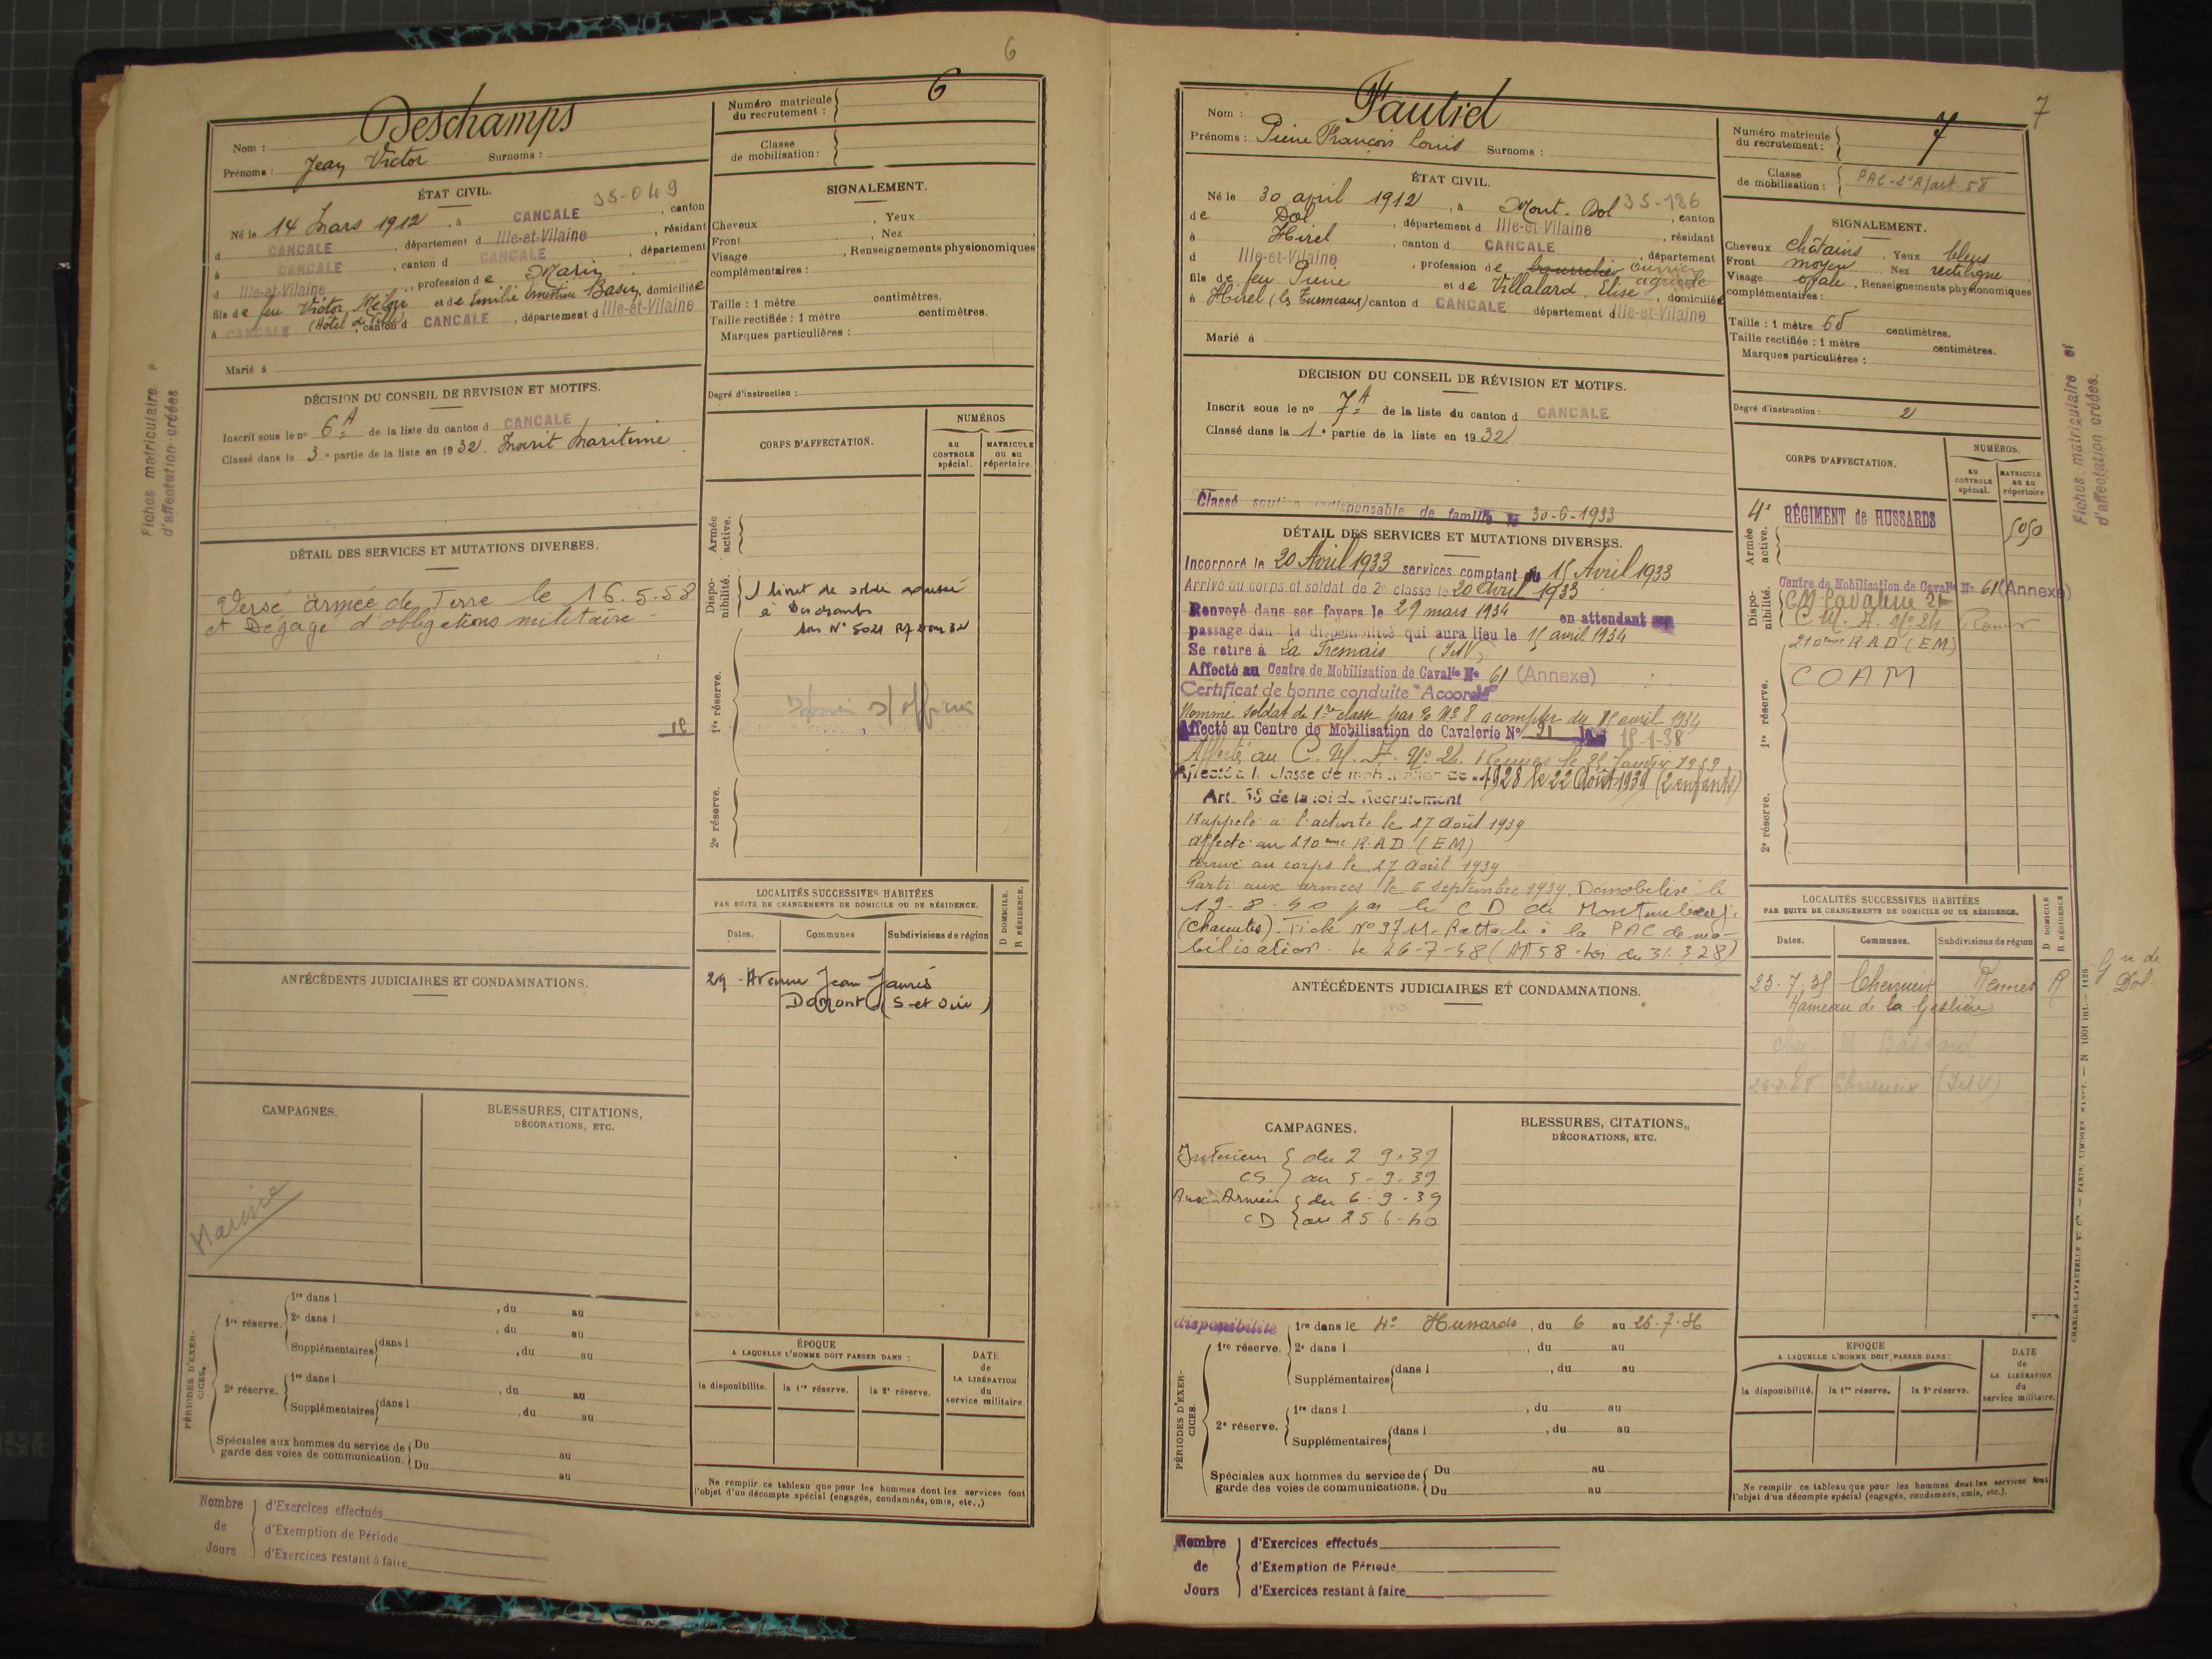 6
Deschamps
Nom :
Prénoms : Jean Victor Surnoms :
Numéro matricule du recrutement : 6
Classe de mobilisation :
ÉTAT CIVIL.
35-049
Né le 14 Mars 1912, à CANCALE, canton
d CANCALE, département d Ille-et-Vilaine, résidant
à CANCALE, canton d CANCALE, département
d Ille-et-Vilaine, profession de Marin
fils de feu Victor et de Emilie Ernestine Basin, domiciliée
à CANCALE (Hôtel de Ville), canton d CANCALE, département d Ille-et-Vilaine
Marié à
SIGNALEMENT.
Cheveux , Yeux ,
Front , Nez ,
Visage , Renseignements physionomiques
complémentaires :
Taille : 1 mètre centimètres.
Taille rectifiée : 1 mètre centimètres.
Marques particulières :
Degré d'instruction :
DÉCISION DU CONSEIL DE REVISION ET MOTIFS.
Inscrit sous le nº 6 A de la liste du canton d CANCALE
Classé dans la 3e partie de la liste en 1932. Inscrit Maritime
Fiches matriculaire
d'affectation créées
CORPS D'AFFECTATION.
NUMÉROS
au CONTROLE spécial.
MATRICULE ou au répertoire.
Armée active.
Disponibilité.
1 livret de solde
à Deschamps
1re réserve.
2e réserve.
DÉTAIL DES SERVICES ET MUTATIONS DIVERSES.
Versé armée de Terre le 16.5.58
et Dégagé d'obligations militaire
ANTÉCÉDENTS JUDICIAIRES ET CONDAMNATIONS.
LOCALITÉS SUCCESSIVES HABITÉES
PAR SUITE DE CHANGEMENTS DE DOMICILE OU DE RÉSIDENCE.
D DOMICILE.
R RÉSIDENCE.
Dates. Communes Subdivisions de région
29 Avenue Jean Jaurès
Domont (S et Oise)
CAMPAGNES.
BLESSURES, CITATIONS,
DÉCORATIONS, ETC.
Marine
PÉRIODES D'EXERCICES.
1re réserve. 1re dans l , du au
2e dans l , du au
Supplémentaires dans l , du au
2e réserve. 1re dans l , du au
Supplémentaires dans l , du au
Spéciales aux hommes du service de garde des voies de communication. Du au
Du au
ÉPOQUE
A LAQUELLE L'HOMME DOIT PASSER DANS :
la disponibilité. la 1re réserve. la 2e réserve.
DATE de LA LIBÉRATION du service militaire.
Ne remplir ce tableau que pour les hommes dont les services font
l'objet d'un décompte spécial (engagés, condamnés, omis, etc.,)
Nombre de Jours
d'Exercices effectués
d'Exemption de Période
d'Exercices restant à faire
7
Nom : Fautrel
Prénoms : Pierre François Louis Surnoms :
Numéro matricule du recrutement : 7
Classe de mobilisation : PAC-2°R/art. 58
ÉTAT CIVIL.
Né le 30 april 1912, à Mont-Dol 35-186, canton
de Dol, département d Ille-et-Vilaine, résidant
à Hirel, canton d CANCALE, département
d Ille-et-Vilaine, profession de bourrelier ouvrier agricole
fils de feu Pierre et de Villalard, Elise, domiciliée
à Hirel (les Turmeaux) canton d CANCALE département d Ille-et-Vilaine
Marié à
SIGNALEMENT.
Cheveux châtains, Yeux bleus
Front moyen, Nez rectiligne
Visage ovale, Renseignements physionomiques
complémentaires :
Taille : 1 mètre 65 centimètres.
Taille rectifiée : 1 mètre centimètres.
Marques particulières :
Degré d'instruction : 2
DÉCISION DU CONSEIL DE RÉVISION ET MOTIFS.
Inscrit sous le nº 7 A de la liste du canton d CANCALE
Classé dans la 1e partie de la liste en 1932
Classé soutien indispensable de famille le 30-6-1933
Fiches matriculaire et
d'affectation créées.
CORPS D'AFFECTATION.
NUMÉROS.
au CONTROLE spécial.
MATRICULE ou au répertoire
Armée active.
4e RÉGIMENT de HUSSARDS 5050
Disponibilité.
Centre de Mobilisation de Cavalie No 61 (Annexe)
CM Cavalerie 21
C. M. A. Nº 24 Rennes
210ème R.A.D (EM)
1re réserve.
COAM
2e réserve.
DÉTAIL DES SERVICES ET MUTATIONS DIVERSES.
Incorporé le 20 Avril 1933 services comptant du 15 Avril 1933
Arrivé au corps et soldat de 2e classe le 20 avril 1933
Renvoyé dans ses foyers le 29 mars 1934 en attendant son
passage dans la disponibilité qui aura lieu le 15 avril 1934
Se retire à La Fremais (I et V)
Affecté au Centre de Mobilisation de Cavalie No 61 (Annexe)
Certificat de bonne conduite "Accordé"
Nommé soldat de 1re classe par Nº 8 a compter du 15 avril 1934
Affecté au Centre de Mobilisation de Cavalerie Nº 21 le 15-1-38
Affecté au C. M. A. Nº 24. Rennes le Janvier 1939
Affecté à la classe de mobilisation de 1928 le 22 Août 1939 (2 enfants)
Art. 58 de la loi de Recrutement
Rappelé à l'activité le 27 Août 1939
affecté au 210ème R.A.D (EM)
arrivé au corps le 27 Août 1939
Parti aux armées le 6 septembre 1939. Démobilisé le
19-8-40 par le CD de Montemboeuf
(Charente). Fiche Nº 9711. Rattaché à la PAC de mo-
bilisation le 26-7-48 (Art 58 loi du 31.3.28)
ANTÉCÉDENTS JUDICIAIRES ET CONDAMNATIONS.
LOCALITÉS SUCCESSIVES HABITÉES
PAR SUITE DE CHANGEMENTS DE DOMICILE OU DE RÉSIDENCE.
D DOMICILE
R RÉSIDENCE
Dates. Communes. Subdivisions de région
23.7.35 Cherrueix Rennes R
Hameau de la
chez M.
Cherrueix (I et V)
Dol
CAMPAGNES.
Intérieur du 2.9.39
CS au 5-9.39
Aux Armées du 6-9-39
CD au 25 6.40
BLESSURES, CITATIONS,
DÉCORATIONS, ETC.
PÉRIODES D'EXERCICES.
disponibilité 1re dans le 4e Hussards, du 6 au 26.7.36
1re réserve. 2e dans l , du au
Supplémentaires dans l , du au
2e réserve. 1re dans l , du au
Supplémentaires dans l , du au
Spéciales aux hommes du service de garde des voies de communications. Du au
Du au
EPOQUE
A LAQUELLE L'HOMME DOIT PASSER DANS :
la disponibilité. la 1re réserve. la 2e réserve.
DATE de LA LIBÉRATION du service militaire.
Ne remplir ce tableau que pour les hommes dont les services font
l'objet d'un décompte spécial (engagés, condamnés, omis, etc.).
Nombre de Jours
d'Exercices effectués
d'Exemption de Période
d'Exercices restant à faire